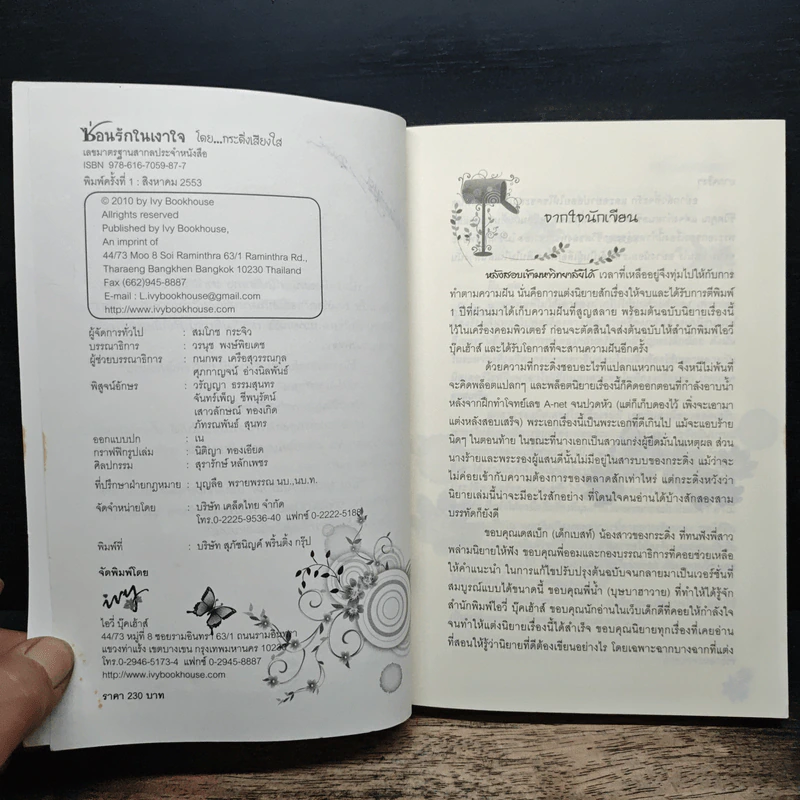 ซ่อนรักในเงาใจ โดย...กระดิ่งเสียงใส
เลขมาตรฐานสากลประจำหนังสือ
ISBN 978-616-7059-87-7
พิมพ์ครั้งที่ 1 : สิงหาคม 2553
© 2010 by Ivy Bookhouse
Allrights reserved
Published by Ivy Bookhouse,
An imprint of
44/73 Moo 8 Soi Raminthra 63/1 Ramintra Rd.,
Tharaeng Bangkhen Bangkok 10230 Thailand
Fax (662)945-8887
E-mail : L.ivybookhouse@gmail.com
http://www.ivybookhouse.com
ผู้จัดการทั่วไป : สมโภช กระจิว
บรรณาธิการ : วรนุช พงษ์พิยเดช
ผู้ช่วยบรรณาธิการ : กนกพร เครือสุวรรณกุล
ศุภกาญจน์ อ่างนิลพันธ์
พิสูจน์อักษร : วรัญญา ธรรมสุนทร
จันทร์เพ็ญ ชีพนุรัตน์
เสาวลักษณ์ ทองเกิด
ภัทรณพันธ์ สุนทร
ออกแบบปก : เน
กราฟฟิกรูปเล่ม : นิติญา ทองเอียด
ศิลปกรรม : สุรารักษ์ หลักเพชร
ที่ปรึกษาฝ่ายกฎหมาย : บุญลือ พรายพรรณ นบ.,นบ.ท.
จัดจำหน่ายโดย : บริษัท เคล็ดไทย จำกัด
โทร.0-2225-9536-40 แฟกซ์ 0-2222-518
พิมพ์ที่ : บริษัท สุภัชนิญค์ พริ้นติ้ง กรุ๊ป
จัดพิมพ์โดย
ivy
ไอวี่ บุ๊คเฮ้าส์
44/73 หมู่ที่ 8 ซอยรามอินทรา 63/1 ถนนรามอินทรา
แขวงท่าแร้ง เขตบางเขน กรุงเทพมหานคร 10230
โทร.0-2946-5173-4 แฟกซ์ 0-2945-8887
http://www.ivybookhouse.com
ราคา 230 บาท
จากใจนักเขียน
หลังสอบเข้ามหาวิทยาลัยได้ เวลาที่เหลืออยู่จึงทุ่มไปให้กับการ
ทำตามความฝัน นั่นคือการแต่งนิยายสักเรื่องให้จบและได้รับการตีพิมพ์
1 ปีที่ผ่านมาได้เก็บความฝันที่สูญสลาย พร้อมต้นฉบับนิยายเรื่องนี้
ไว้ในเครื่องคอมพิวเตอร์ ก่อนจะตัดสินใจส่งต้นฉบับให้สำนักพิมพ์ไอวี่
บุ๊คเฮ้าส์ และได้รับโอกาสที่จะสานความฝันอีกครั้ง
ด้วยความที่กระดิ่งชอบอะไรที่แปลกแหวกแนว จึงหนีไม่พ้นที่
จะคิดพล็อตแปลกๆ และพล็อตนิยายเรื่องนี้ก็คิดออกตอนที่กำลังอาบน้ำ
หลังจากฝึกทำโจทย์เลข A-net จนปวดหัว (แต่ก็เก็บดองไว้ เพิ่งจะเอามา
แต่งหลังสอบเสร็จ) พระเอกเรื่องนี้เป็นพระเอกที่ดีเกินไป แม้จะแอบร้าย
นิดๆ ในตอนท้าย ในขณะที่นางเอกเป็นสาวแกร่งผู้ยึดมั่นในเหตุผล ส่วน
นางร้ายและพระรองผู้แสนดีนั้นไม่มีอยู่ในสารบบของกระดิ่ง แม้ว่าจะ
ไม่ค่อยเข้ากับความต้องการของตลาดสักเท่าไหร่ แต่กระดิ่งหวังว่า
นิยายเล่มนี้น่าจะมีอะไรสักอย่าง ที่โดนใจคนอ่านได้บ้างสักสองสาม
บรรทัดก็ยังดี
ขอบคุณเดสเบ็ก (เด็กเบสท์) น้องสาวของกระดิ่ง ที่ทนฟังพี่สาว
พล่ามนิยายให้ฟัง ขอบคุณพี่ออมและกองบรรณาธิการที่คอยช่วยเหลือ
ให้คำแนะนำ ในการแก้ไขปรับปรุงต้นฉบับจนกลายมาเป็นเวอร์ชั่นที่
สมบูรณ์แบบได้ขนาดนี้ ขอบคุณพี่น้ำ (บุษบาฮาวาย) ที่ทำให้ได้รู้จัก
สำนักพิมพ์ไอวี่ บุ๊คเฮ้าส์ ขอบคุณนักอ่านในเว็บเด็กดีที่คอยให้กำลังใจ
จนทำให้แต่งนิยายเรื่องนี้ได้สำเร็จ ขอบคุณนิยายทุกเรื่องที่เคยอ่าน
ที่สอนให้รู้ว่านิยายที่ดีต้องเขียนอย่างไร โดยเฉพาะฉากบางฉากที่แต่ง